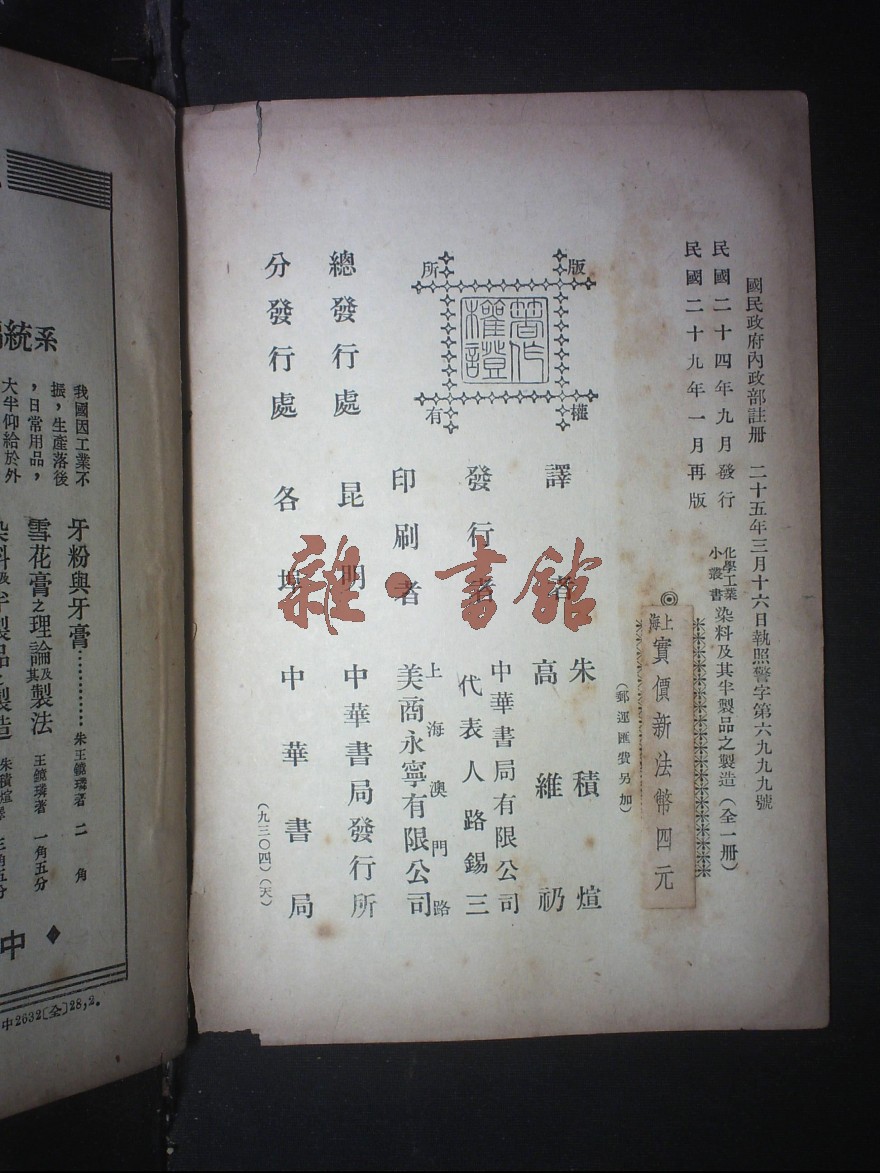 國民政府內政部註册 二十五年三月十六日執照警字第六九九九號
民國二十四年九月發行
民國二十九年一月再版
化學工業小叢書 染料及其半製品之製造（全一册）
◎
上海 實價新法幣四元
（郵運匯費另加）
版權所有
著作權證
譯者 朱積煊 高維礽
發行者 中華書局有限公司 代表人路錫三
印刷者 上海澳門路 美商永寧有限公司
總發行處 昆明 中華書局發行所
分發行處 各埠 中華書局
（九三〇四）（天）
雜·書館
系統
我國因工業不
振，生產落後
，日常用品，
大半仰給於外
牙粉與牙膏………… 朱王鏡璘著 二角
雪花膏之理論及其製法 王鏡璘著 一角五分
染料及半製品之製造 朱積煊譯 三角五分
中
中2632〔全〕28,2.